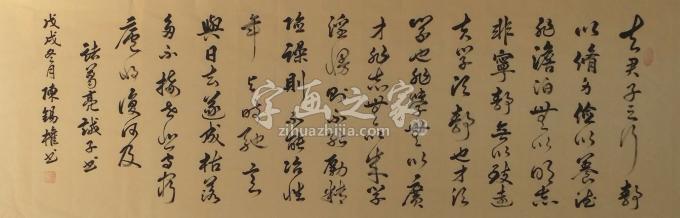 夫君子之行靜
以脩身儉以養德
非澹泊無以明志
非寧靜無以致遠
夫學須靜也才須
學也非學無以廣
才非志無以成學
淫慢則不能勵精
險躁則不能冶性
年与時馳意
與日去遂成枯落
多不接世悲守窮
廬將復何及
諸葛亮誡子書
戊戌冬月陳錫權書
字画之家
zihuazhijia.com